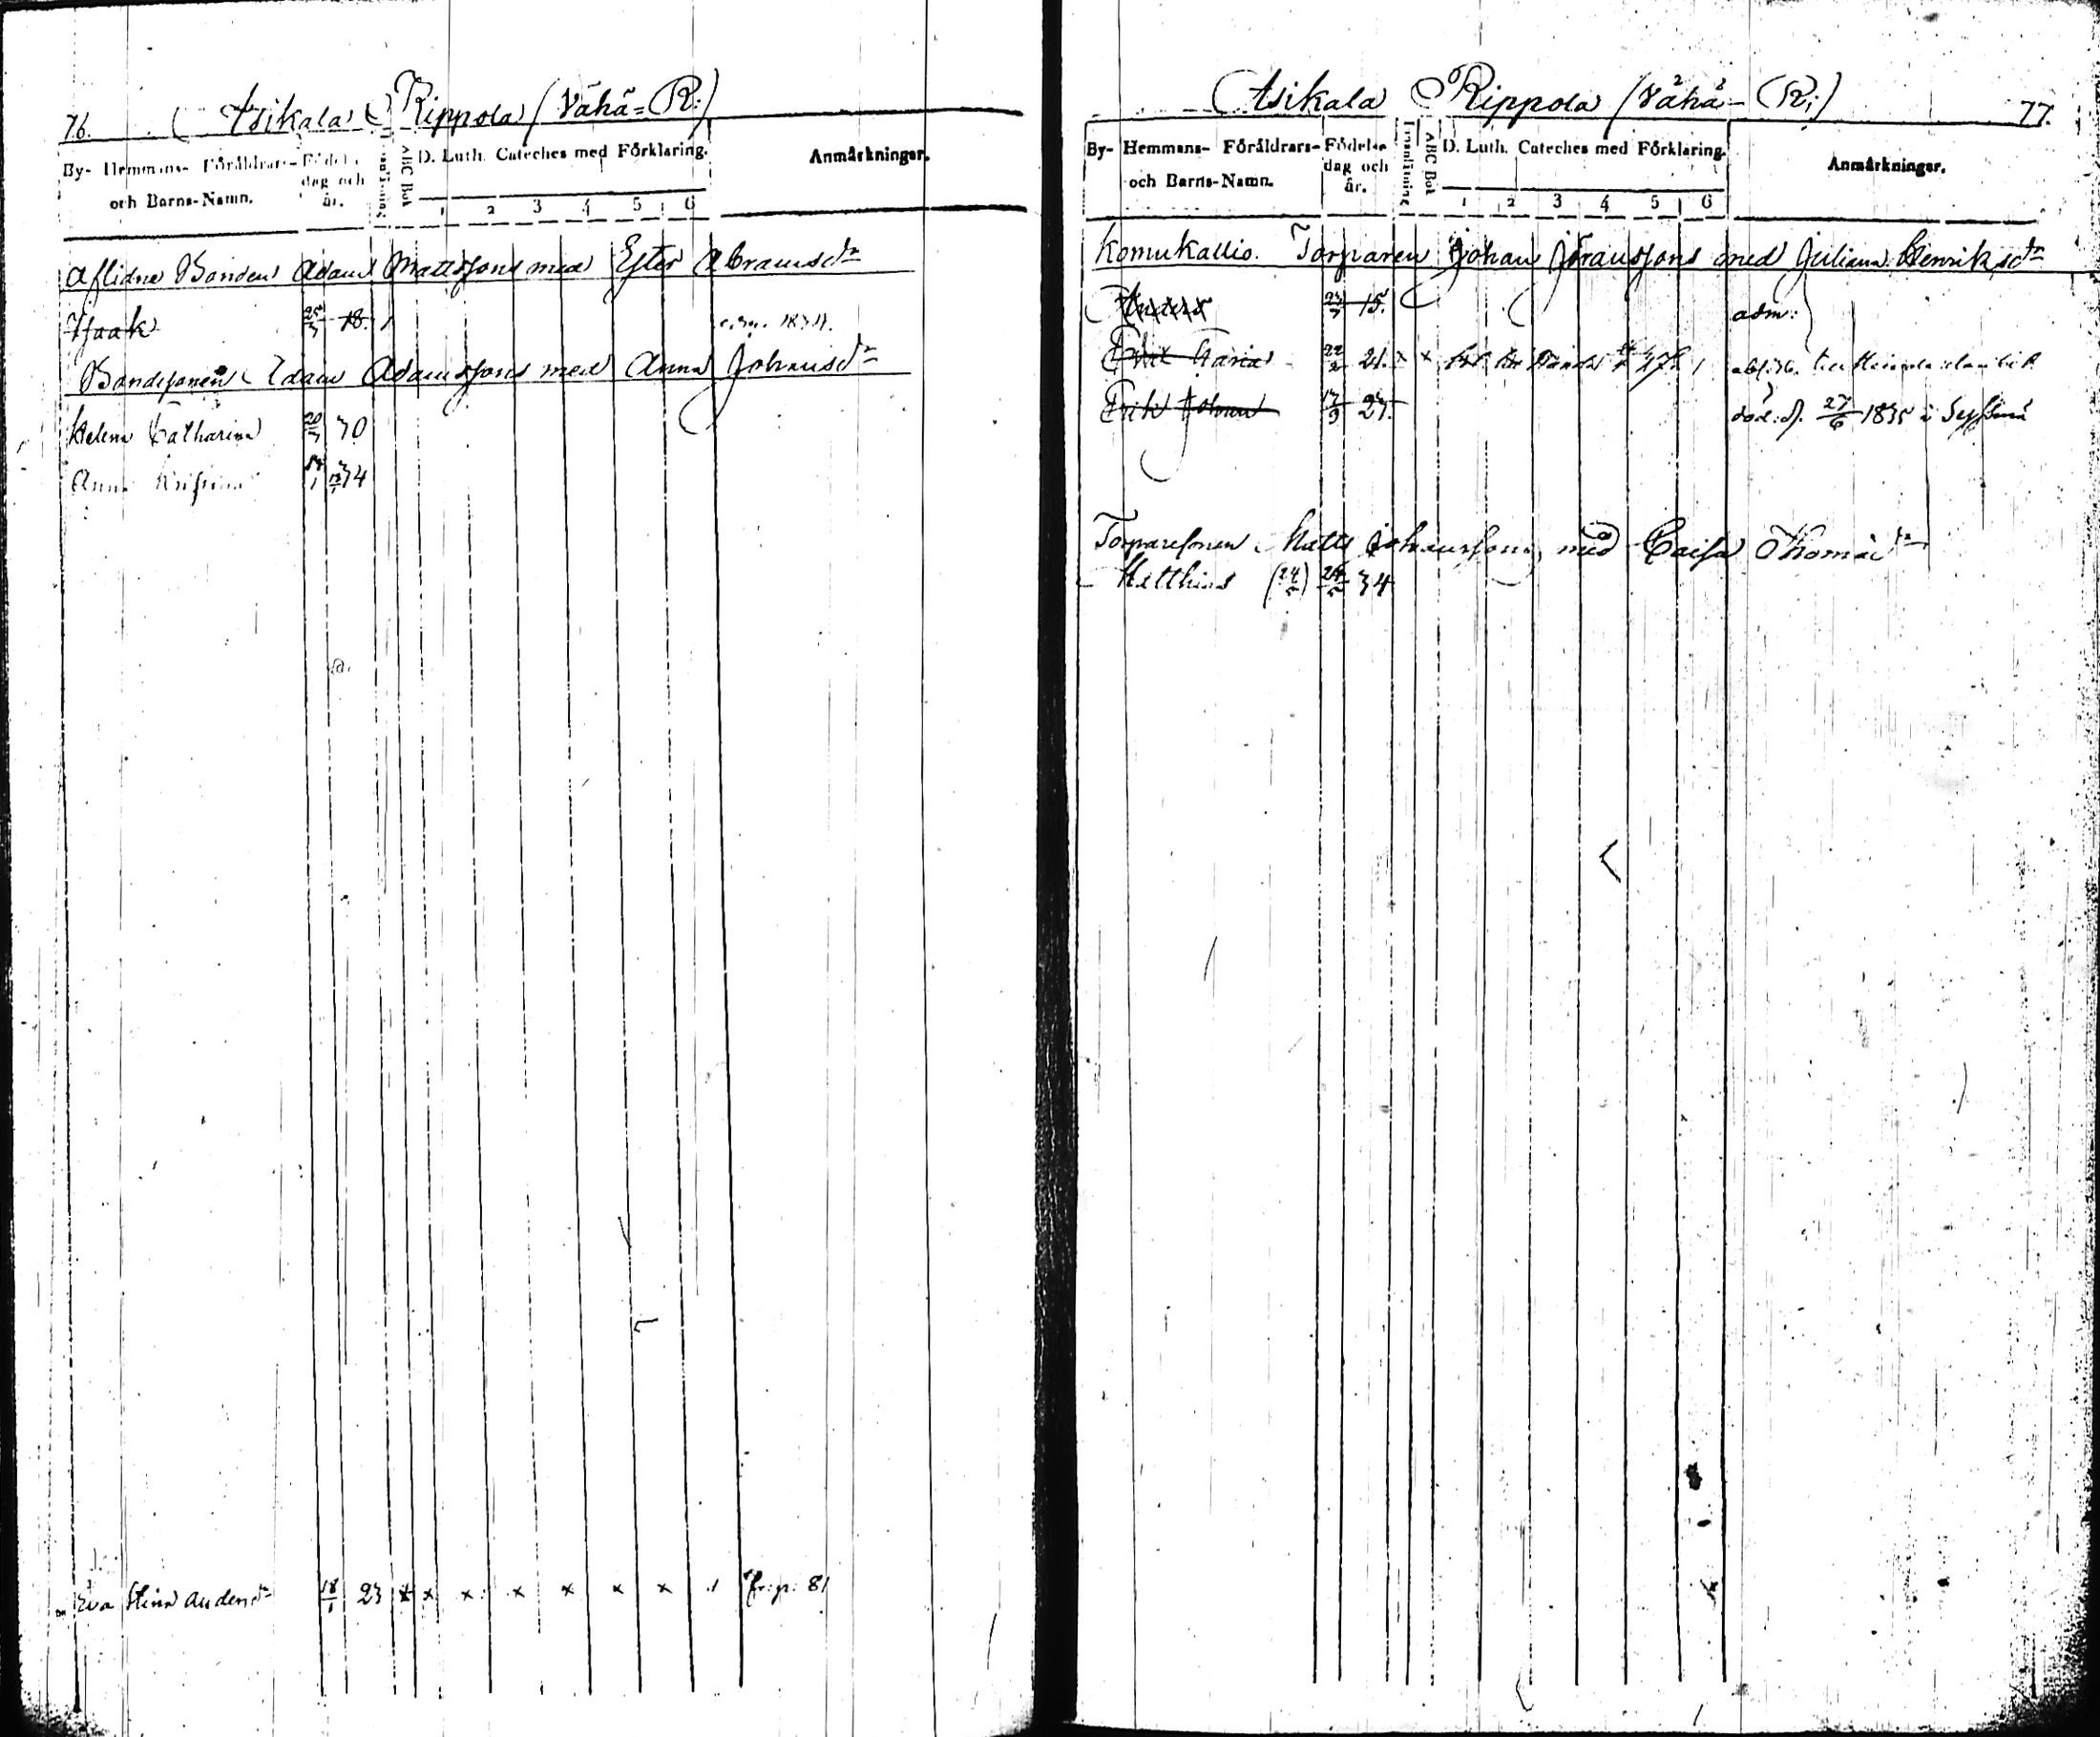 76. Asikala Rippola (Vähä=R:)
By- Hemmans- Föräldrars- Födelse
dag och
och Barns-Namn. år.
ABC Bok
D. Luth. Cateches med Förklaring.
Anmärkningar.
1 2 3 4 5 6
Aflidne Bonden Adam Mattssons med Ester Abramsdr
Isaak 25/3 18. 1834.
Bondesonen Adam Adamssons med Anna Johansdr
Helena Catharina 20/3 30
Anna 34
Eva Stina Andersdr 18/1 23 x x x x x x x fr: p: 81
Asikala Rippola (Vähä-R;) 77.
By- Hemmans- Föräldrars- Födelse
dag och
och Barns-Namn. år.
Innanläsning
ABC Bok
D. Luth. Cateches med Förklaring.
Anmärkningar.
1 2 3 4 5 6
Komukallio. Torparen Johan Göranssons med Juliana Henriksdr
Anders 15. adm:
Maria 22/2 21. x x
Erik Johan 17/9 27. död: d. 27/6 1835 i
Torparesonen Matts Johanssons med Caisa Thomædr
Matthias (24/2) 24/2 34